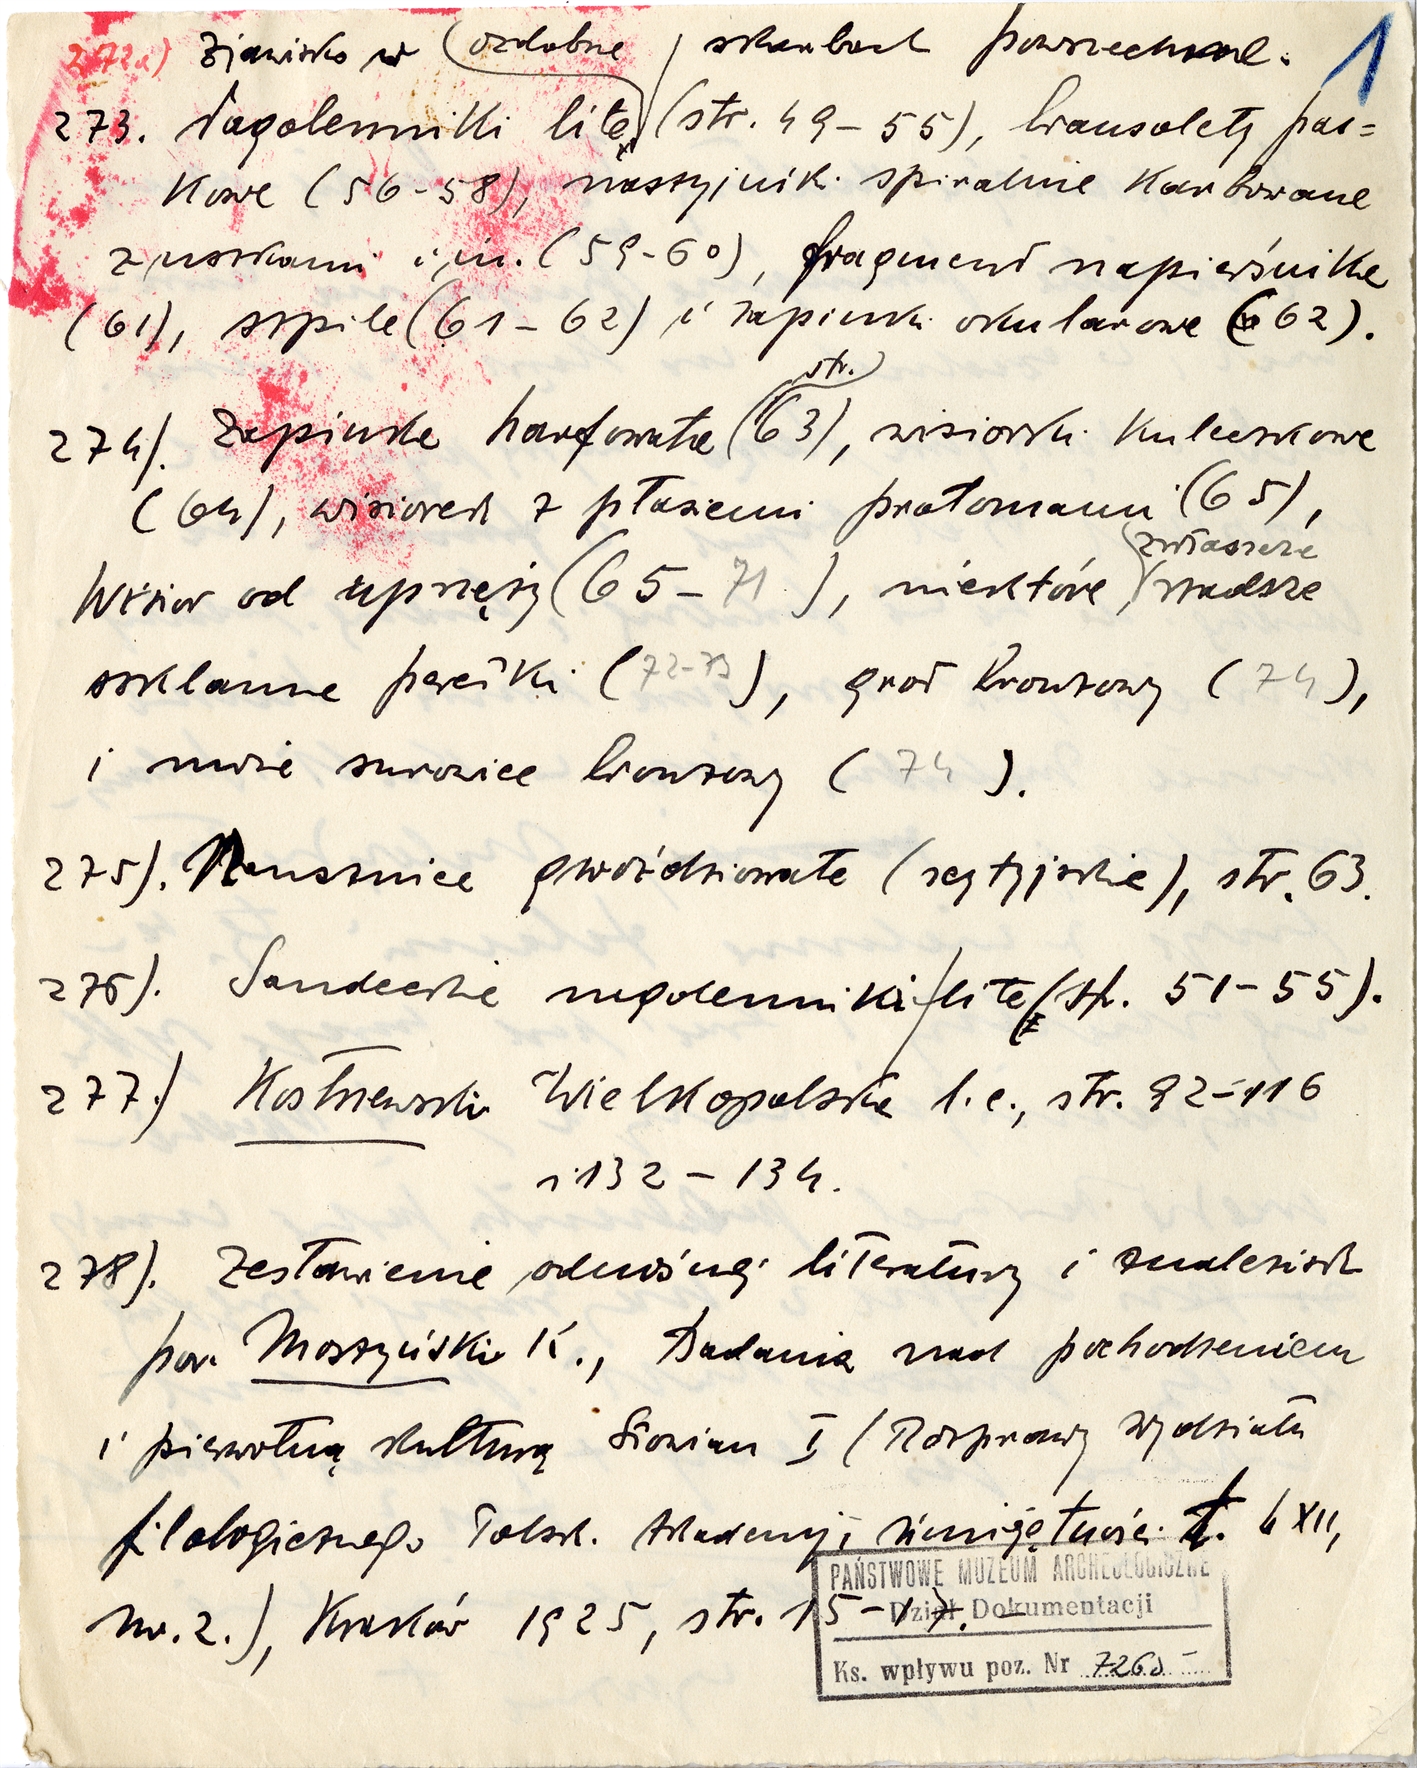 272a) Zjawisko w skarbach powszechne. 1
273. Nagolenniki lite ozdobne (str. 49-55), bransolety pas=
kowe (56-58), naszyjniki spiralnie karbowane
z uszkami i in. (59-60), fragment napierśnika
(61), szpile (61-62) i zapinki okularowe (62).
str.
274). Zapinka harfowata (63), wisiorki kuleczkowe
(64), wisiorek z ptasiemi protomami (65),
zwłaszcza
Wisior od uprzęży (65-71), niektóre rzadsze
szklanne perełki (72-73), grot bronzowy (74),
i może surowiec bronzowy (74).
275). Nausznice gwoździowate (scytyjskie), str. 63.
276). Sandeckie nagolenniki lite (str. 51-55).
277.) Kostrzewski Wielkopolska l.c., str. 92-116
i 132-134.
278). Zestawienie odnośnej literatury i znalezisk
por. Moszyński K., Badania nad pochodzeniem
i pierwotną kulturą Słowian I (Rozprawy Wydziału
filologicznego Polsk. Akademji Umiejętności t. LXII,
nr. 2.), Kraków 1925, str. 15-17.
PAŃSTWOWE MUZEUM ARCHEOLOGICZNE
Dział Dokumentacji
Ks. wpływu poz. Nr